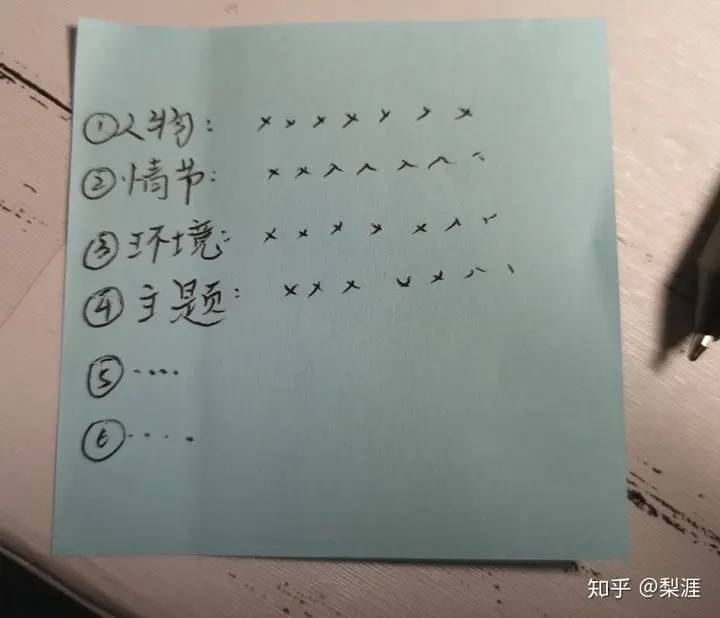 ①人物：×××××××
②情节：×××××××
③环境：×××××××
④主题：××××××××
⑤····
⑥····
知乎 @梨涯